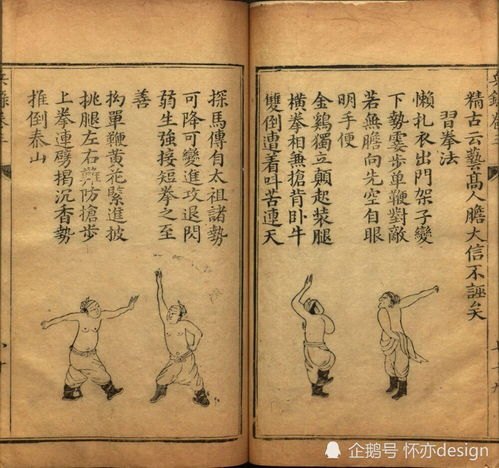 精古云藝高人膽大信不誣矣
習拳法
懶扎衣出門架子變
下勢霎步單鞭對敵
若無膽向先空自眼
明手便
金鷄獨立顛起裝腿
橫拳相無搶肯卧牛
雙倒遭着叫苦連天
探馬傳自太祖諸勢
可降可變進攻退閃
弱生強接短拳之至
善
拗單鞭黃花緊進披
挑腿左右難防搶步
上拳連劈揭沉香勢
推倒泰山
企鹅号 怀亦design